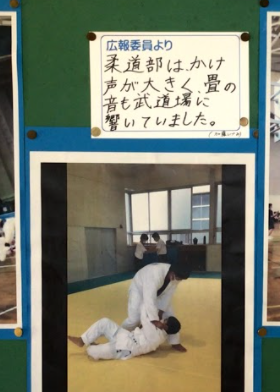 広報委員より
柔道部は、かけ
声が大きく、畳の
音も武道場に
響いていました。